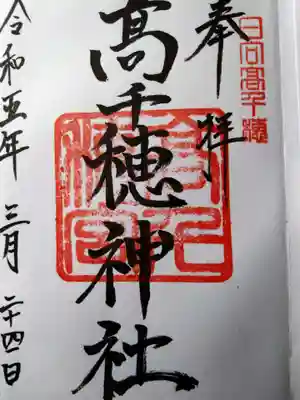 奉拝
日向髙千穂
髙千穂神社
令和五年三月二十四日